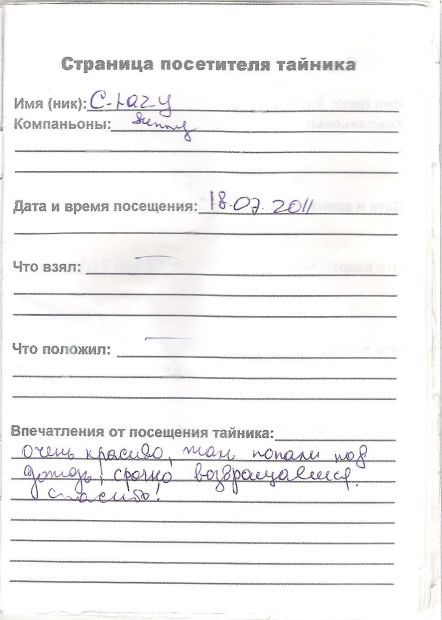 Страница посетителя тайника
Имя (ник): C-pazy
Компаньоны:
Дата и время посещения: 18.07.2011
Что взял: —
Что положил: —
Впечатления от посещения тайника:
очень красиво, жаль попали под
дождь, срочно возвращаемся.
спасибо!